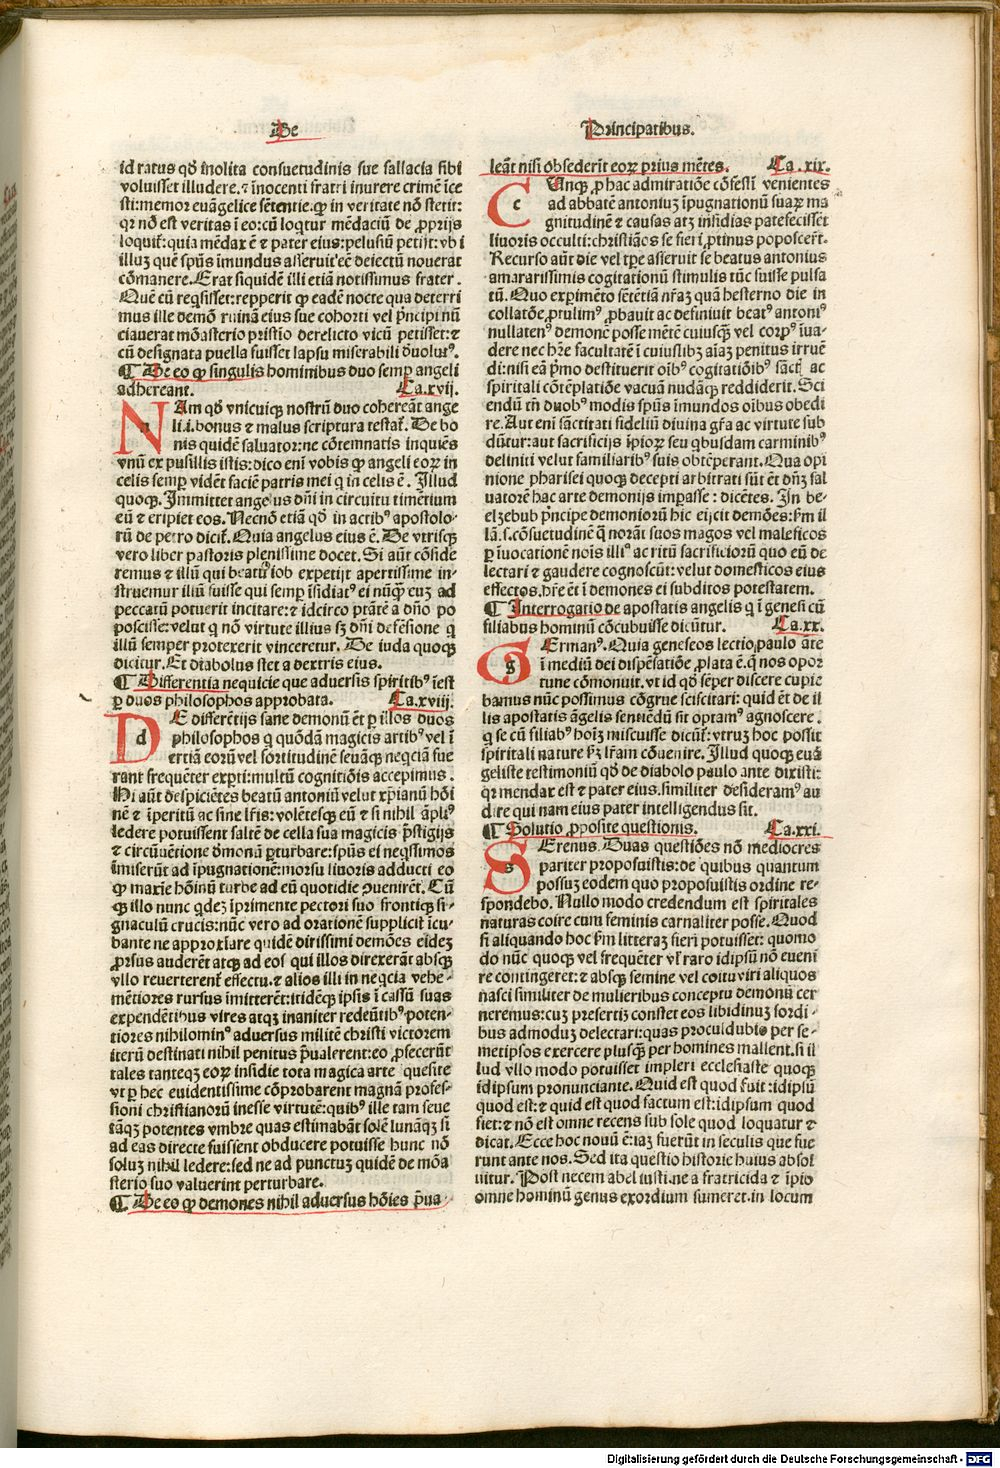 De
Principatibus.
id ratus qd̛ īnolita consuetudinis sue fallacia sibi
voluisset illudere.⁊ īnocenti fratri inurere crimē īce
sti:memor euāgelice sētentie.ꝙ in veritate nō stetit:
qr nō est veritas ī eo:cū loqtur mēdaciū de ꝓprijs
loquit̄:quia mēdax ē ⁊ pater eius:pelusiū petijt:vbi
illuꝫ quē spūs īmundus asseruit'eē deiectū nouerat
cōmanere.Erat siquidē illi etiā notissimus frater.
Quē cū reqsisset:repperit ꝙ eadē nocte qua deterri
mus ille demō ruinā eius sue cohorti vel pͥncipi nū
ciauerat mōasterio pristio derelicto vicū petisset:⁊
cū designata puella fuisset lapsu miserabili d̄uolutꝰ.
¶ De eo ꝙ singulis hominibus duo semꝑ angeli
adhereant. Ca.xvij.
NAm qd̛ vnicuiqꝫ nostrū duo cohereāt ange
li.i.bonus ⁊ malus scriptura testat̄. De bo
nis quidē saluator:ne cōtemnatis inquiēs
vnū ex pusillis istis:dico eni vobis ꝙ angeli eoꝝ in
celis semꝑ vidēt faciē patris mei q in celis ē. Illud
quoqꝫ.Immittet angelus dn̄i in circuitu timētium
eū ⁊ eripiet eos.Necnō etiā qd̛ in actibꝰ apostolo-
rū de petro dicit̄.Quia angelus eius ē.De vtrisqꝫ
vero liber pastoris plenissime docet.Si aūt cōside
remus ⁊ illū qui beatū iob expetijt apertissime in-
struemur illū fuisse qui semꝑ īsidiatꝰ ei nūqꝫ euꝫ ad
peccatū potuerit incitare:⁊ idcirco ptātē a dn̄o po
poscisse:velut q nō virtute illius sꝫ dn̄i defēsione q
illū semper protexerit vinceretur. De iuda quoqꝫ
dicitur.Et diabolus stet a dextris eius.
¶ Differentia nequicie que aduersis spiritibꝰ īest
ꝑ duos philosophos approbata. Ca.xviij.
DE differētijs sane demonū ēt ꝑ illos duos
philosophos q quōdā magicis artibꝰ vel ī
ertiā eorū vel fortitudinē seuāqꝫ neqciā sue
rant frequēter exꝑti:multū cognitiōis accepimus.
Hi aūt despiciētes beatū antoniū velut xp̄ianū hōi
nē ⁊ īperitū ac sine lr̄is:volētesqꝫ eū ⁊ si nihil āpliꝰ
ledere potuissent saltē de cella sua magicis pͣstigijs
⁊ circūuētione dͤmonū ꝑturbare:spūs ei neqssimos
imiserūt ad īpugnationē:morsu liuoris adducti eo
ꝙ maxīe hōinū turbe ad eū quotidie ꝓuenirēt. Cū
qꝫ illo nunc qdeꝫ īprimente pectori suo frontiqꝫ si-
gnaculū crucis:nūc vero ad orationē suppliciť īcu-
bante ne approxīare quidē dirissimi demōes eideꝫ
ꝓrsus auderēt atqꝫ ad eos qui illos direxerāt absqꝫ
vllo reuerterent̄ effectu.⁊ alios illi in neqcia vehe-
mētiores rursus imitterēt:itidēqꝫ ipsis ī cassū suas
expendētibus vires atqꝫ inaniter redeūtibꝰ·poten-
tiores nihilominꝰ aduersus militē christi victorem
iterū destinati nihil penitus pͥualerent:eo ꝓfecerūt
tales tanteqꝫ eoꝝ insidie tota magica arte quesite
vt ꝑ hec euidentissime cōprobarent magnā profes-
sioni christianorū inesse virtutē:quibꝰ ille tam seue
tāqꝫ potentes vmbre quas estimabāt solē lunāqꝫ si
ad eas directe fuissent obducere potuisse hunc nō
soluꝫ nihil ledere:sed ne ad punctuꝫ quidē de mōa
sterio suo valuerint perturbare.
¶ De eo ꝙ demones nihil aduersus hōies pͥua-
leāt nisi obsederit eoꝝ prius mētes. Ca.xix.
CUnqꝫ ꝓ hac admiratiōe cōfessi venientes
ad abbatē antoniuꝫ īpugnationū suaꝝ ma
gnitudinē ⁊ causas atqꝫ insidias patefecisset
liuoris occulti:christiāos se fieri ꝓtinus poposcer̄t.
Recurso aūt die vel tꝑe asseruit se beatus antonius
amararissimis cogitationū stimulis tūc fuisse pulsa
tū.Quo exꝑimēto sētētiā nr̄aꝫ quā hesterno die in
collatōe ꝓtulimꝰ ꝓbauit ac definiuit beatꝰ antoniꝰ
nullatenꝰ demonē posse mētē cuiusqꝫ vel corpꝰ īua-
dere nec hr̄e facultatē ī cuiuslibꝫ aīaꝫ penitus irruē
di:nisi eā pͥmo destituerit oībꝰ cogitatiōibꝰ sāctꝭ ac
spiritali cōtēplatiōe vacuā nudāqꝫ reddiderit.Sci
endū tn̄ duobꝰ modis spūs īmundos oībus obedi
re.Aut eni sāctitati fideliū diuina gr̄a ac virtute sub
dūtur:aut sacrificijs īpioꝝ seu qbusdam carminibꝰ
deliniti velut familiaribꝰ suis obtēperant.Qua opi
nione pharisei quoqꝫ decepti arbitrati sūt ēt dn̄ꝫ sal
uatorē hac arte demonijs imꝑasse: dicētes. In be-
elzebub pͥncipe demoniorū hic eijcit demōes:ẜm il
lā.s.cōsuetudinē q norāt suos magos vel maleficos
ꝑ īuocationē nois illiꝰ ac ritū sacrificiorū quo eū de
lectari ⁊ gaudere cognoscūt:velut domesticos eius
effectos.hr̄e ēt ī demones ei subditos potestatem.
¶ Interrogatio de apostatis angelis q ī genesi cū
filiabus hominū cōcubuisse dicūtur. Ca.xx.
GErmanꝰ.Quia geneseos lectio paulo āte
ī mediū dei dispēsatiōe ꝓlata ē.q̄ nos opor
tune cōmonuit.vt id qd̛ sēper discere cupie
bamus nūc possimus cōgrue sciscitari: quid ēt de il
lis apostatis āgelis sentiēdū sit optamꝰ agnoscere.
q se cū filiabꝰ hoīꝫ miscuisse dicūt̄:vtruꝫ hoc possit
spiritali nature ẜꝫ lr̄am cōuenire.Illud quoqꝫ euā
geliste testimoniū qd̛ de diabolo paulo ante dixisti:
qr mendax est ⁊ pater eius.similiter desideramꝰ au
dire qui nam eius pater intelligendus sit.
¶ Solutio ꝓposite questionis. Ca.xxi.
SErenus. Duas questiōes nō mediocres
pariter proposuistis:de quibus quantum
possuꝫ eodem quo proposuistis ordine re-
spondebo.Nullo modo credendum est spiritales
naturas coire cum feminis carnaliter posse. Quod
si aliquando hoc ẜm litteraꝫ fieri potuisset: quomo
do nūc quoqꝫ vel frequēter vl̓ raro idipsū nō eueni
re contingeret:⁊ absqꝫ semine vel coitu viri aliquos
nasci similiter de mulieribus conceptu demonū cer
neremus:cuꝫ presertiꝫ constet eos libidinuꝫ sordi-
bus admoduꝫ delectari:quas proculdubio per se-
metipsos exercere plusqꝫ per homines mallent.si il
lud vllo modo potuisset impleri ecclesiaste quoqꝫ
idipsum pronunciante.Quid est quod fuit:idipsū
quod est:⁊ quid est quod factum est:idipsum quod
fiet:⁊ nō est omne recens sub sole quod loquatur ⁊
dicat.Ecce hoc nouū ē:iaꝫ fuerūt in seculis que fue
runt ante nos.Sed ita questio historie huius absol
uitur. Post necem abel iusti.ne a fratricida ⁊ īpio
omne hominū genus exordium sumeret.in locum
Digitalisierung gefördert durch die Deutsche Forschungsgemeinschaft - DFG